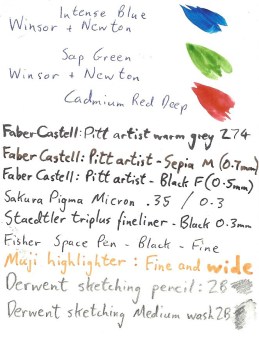 Intense Blue
Winsor + Newton
Sap Green
Winsor + Newton
Cadmium Red Deep
Faber Castell: Pitt artist warm grey 274
Faber Castell: Pitt artist - Sepia M (0.7mm)
Faber Castell: Pitt artist - Black F (0.5mm)
Sakura Pigma Micron .35 / 0.3
Staedtler triplus fineliner - Black 0.3mm
Fisher Space Pen - Black - Fine
Muji highlighter : Fine and wide
Derwent sketching pencil: 2B
Derwent sketching Medium wash 2B